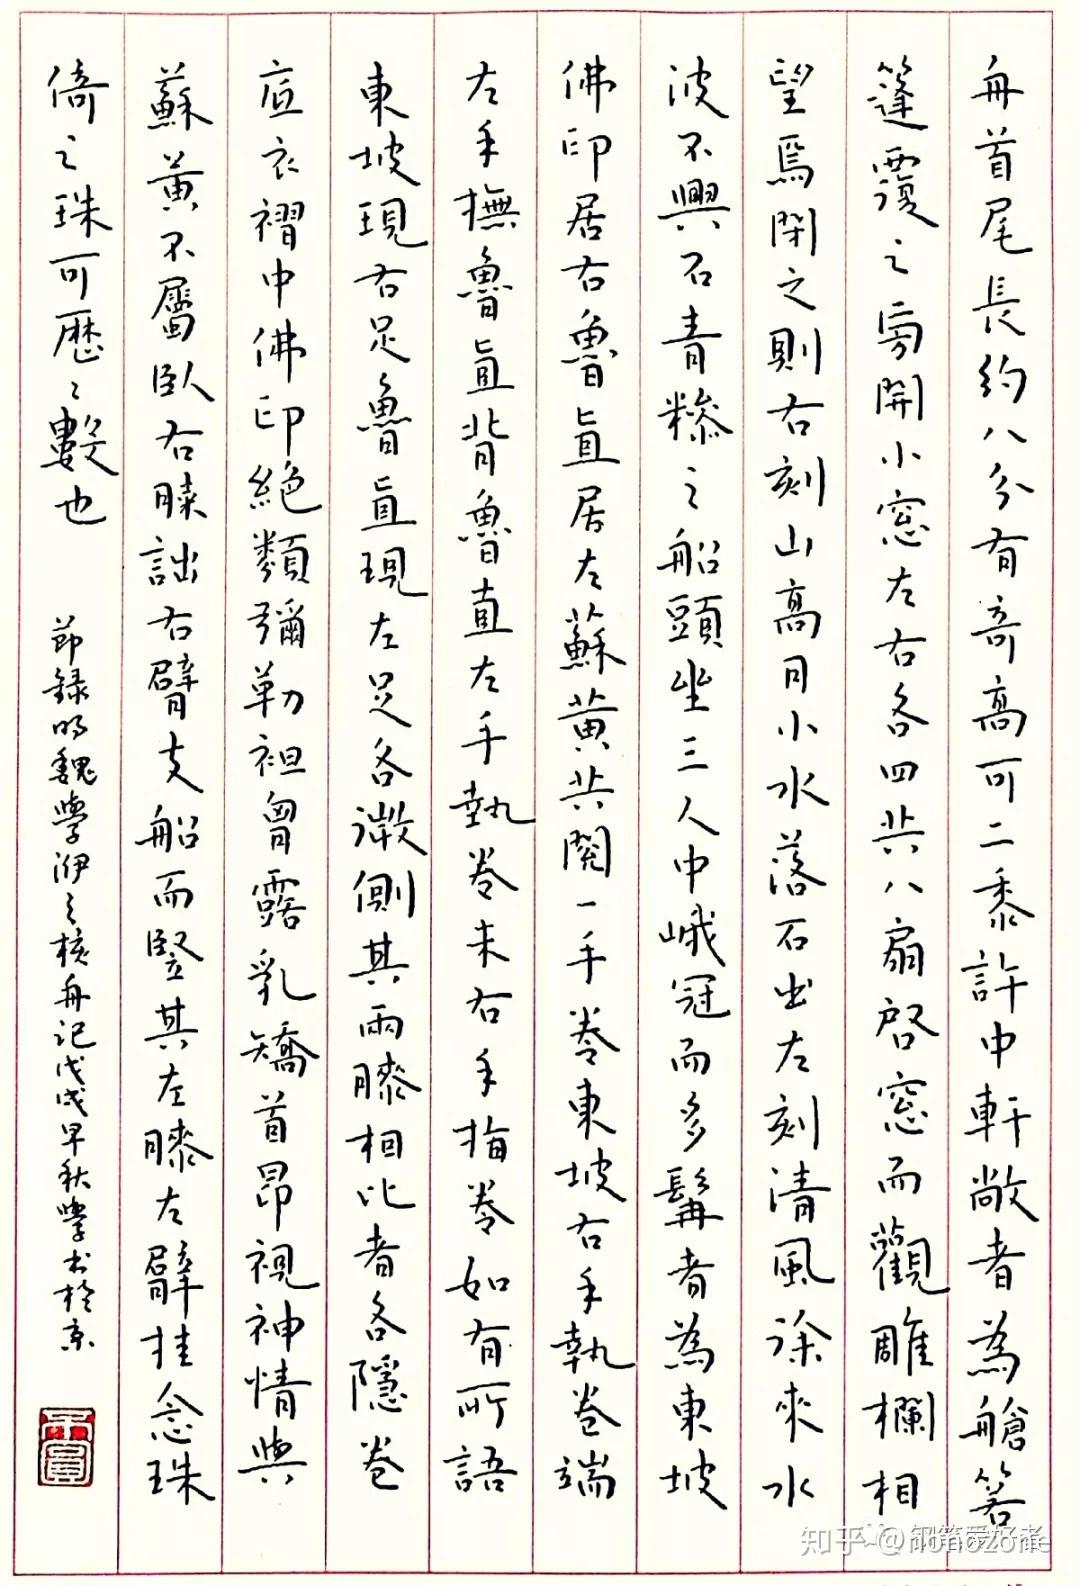 舟首尾長約八分有奇高可二黍許中軒敞者為艙箬
篷覆之旁開小窓左右各四共八扇啓窓而觀雕欄相
望焉閉之則右刻山高月小水落石出左刻清風徐來水
波不興石青糝之船頭坐三人中峨冠而多髯者為東坡
佛印居右魯直居左蘇黄共閱一手卷東坡右手執卷端
左手撫魯直背魯直左手執卷末右手指卷如有所語
東坡現右足魯直現左足各微側其兩膝相比者各隱卷
底衣褶中佛印絕類彌勒袒胷露乳矯首昂視神情與
蘇黄不屬臥右膝詘右臂支船而竪其左膝左臂挂念珠
倚之珠可歷々數也
節録明魏學洢之核舟记戊戌早秋學书於京
知乎 @nonozone